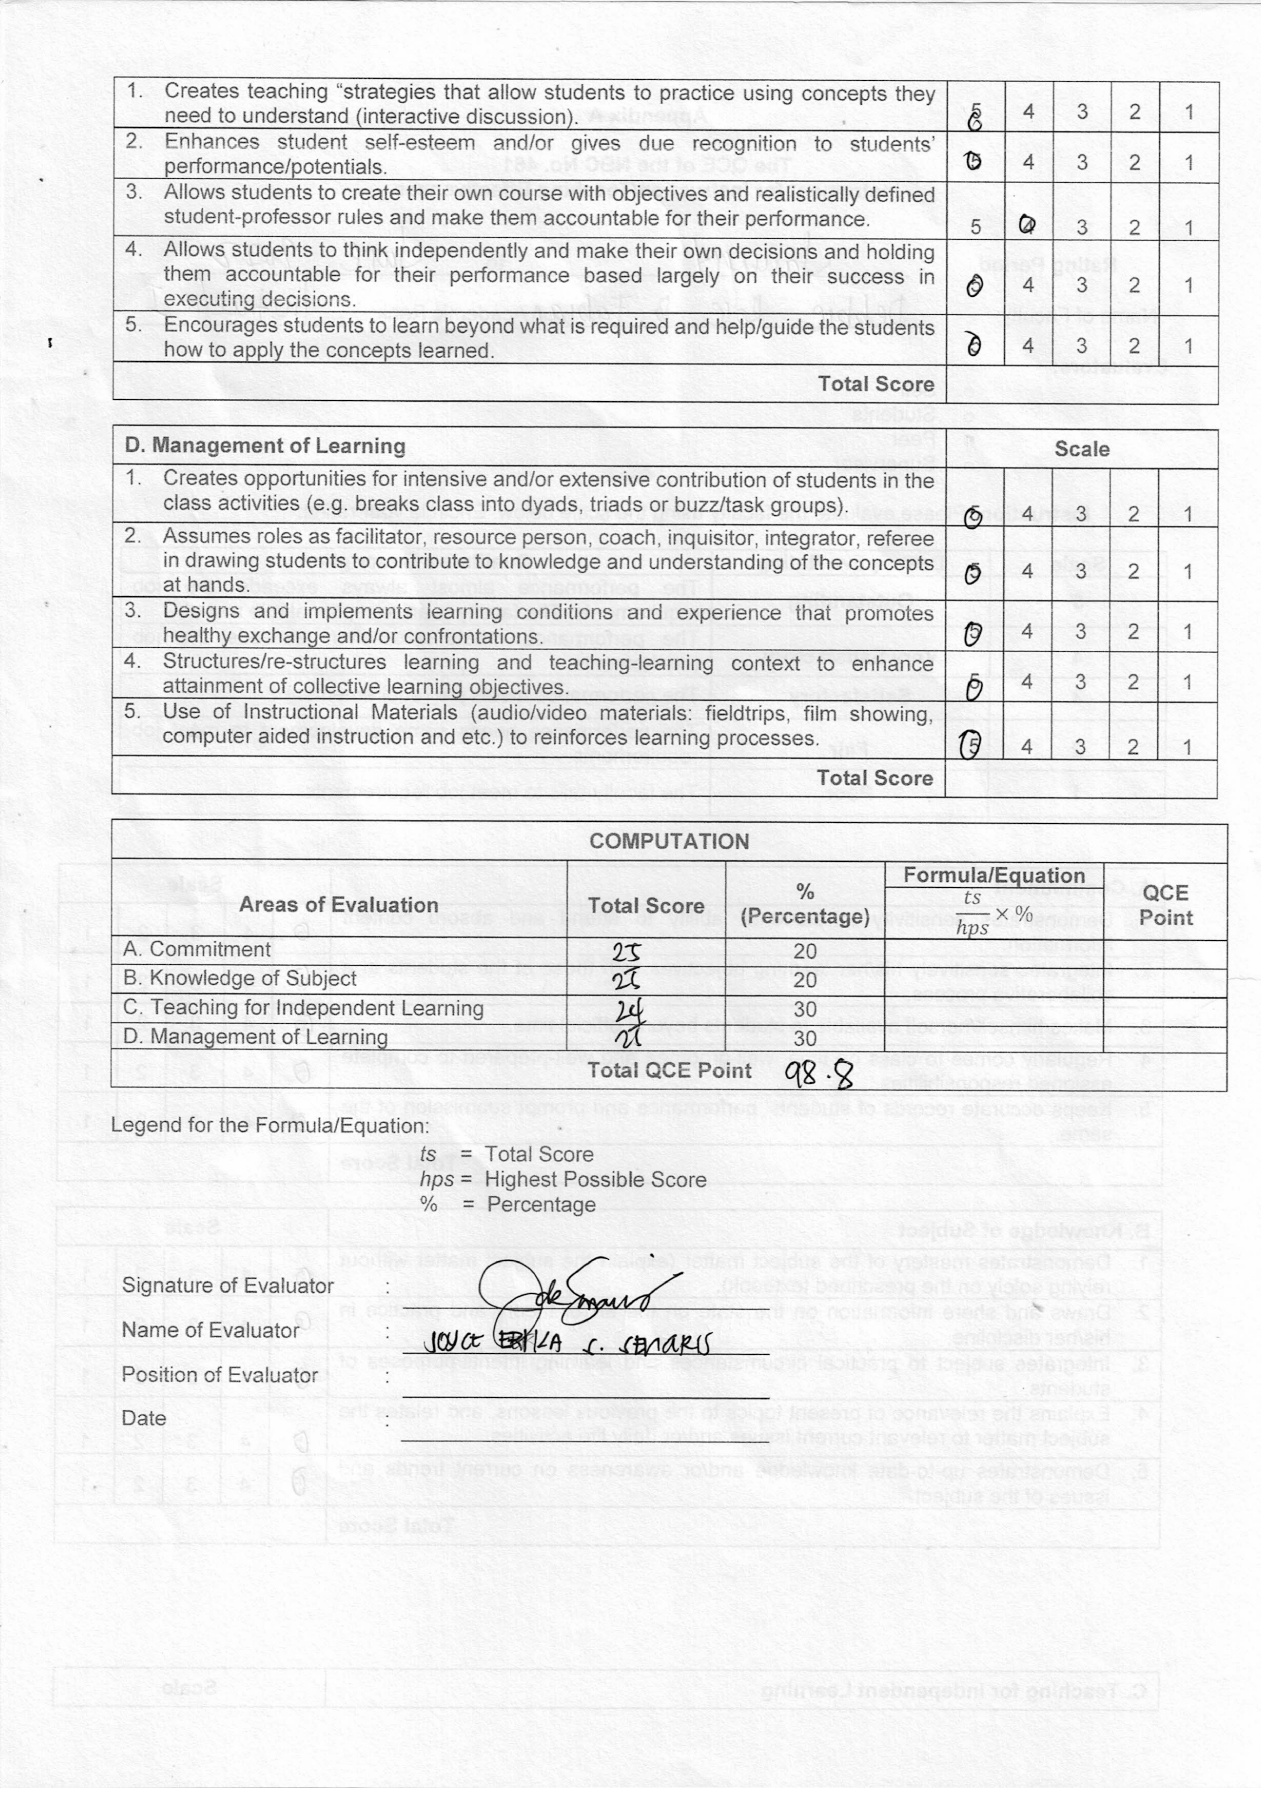 1. Creates teaching “strategies that allow students to practice using concepts they
need to understand (interactive discussion). 5 4 3 2 1
2. Enhances student self-esteem and/or gives due recognition to students'
performance/potentials. 5 4 3 2 1
3. Allows students to create their own course with objectives and realistically defined
student-professor rules and make them accountable for their performance. 5 4 3 2 1
4. Allows students to think independently and make their own decisions and holding
them accountable for their performance based largely on their success in
executing decisions. 5 4 3 2 1
5. Encourages students to learn beyond what is required and help/guide the students
how to apply the concepts learned. 5 4 3 2 1
Total Score
D. Management of Learning Scale
1. Creates opportunities for intensive and/or extensive contribution of students in the
class activities (e.g. breaks class into dyads, triads or buzz/task groups). 5 4 3 2 1
2. Assumes roles as facilitator, resource person, coach, inquisitor, integrator, referee
in drawing students to contribute to knowledge and understanding of the concepts
at hands. 5 4 3 2 1
3. Designs and implements learning conditions and experience that promotes
healthy exchange and/or confrontations. 5 4 3 2 1
4. Structures/re-structures learning and teaching-learning context to enhance
attainment of collective learning objectives. 5 4 3 2 1
5. Use of Instructional Materials (audio/video materials: fieldtrips, film showing,
computer aided instruction and etc.) to reinforces learning processes. 5 4 3 2 1
Total Score
COMPUTATION
Areas of Evaluation Total Score % (Percentage) Formula/Equation ts/hps × % QCE Point
A. Commitment 25 20
B. Knowledge of Subject 25 20
C. Teaching for Independent Learning 24 30
D. Management of Learning 25 30
Total QCE Point 98.8
Legend for the Formula/Equation:
ts = Total Score
hps = Highest Possible Score
% = Percentage
Signature of Evaluator :
Name of Evaluator : JOYCE ERIKA S. SENARIS
Position of Evaluator :
Date :